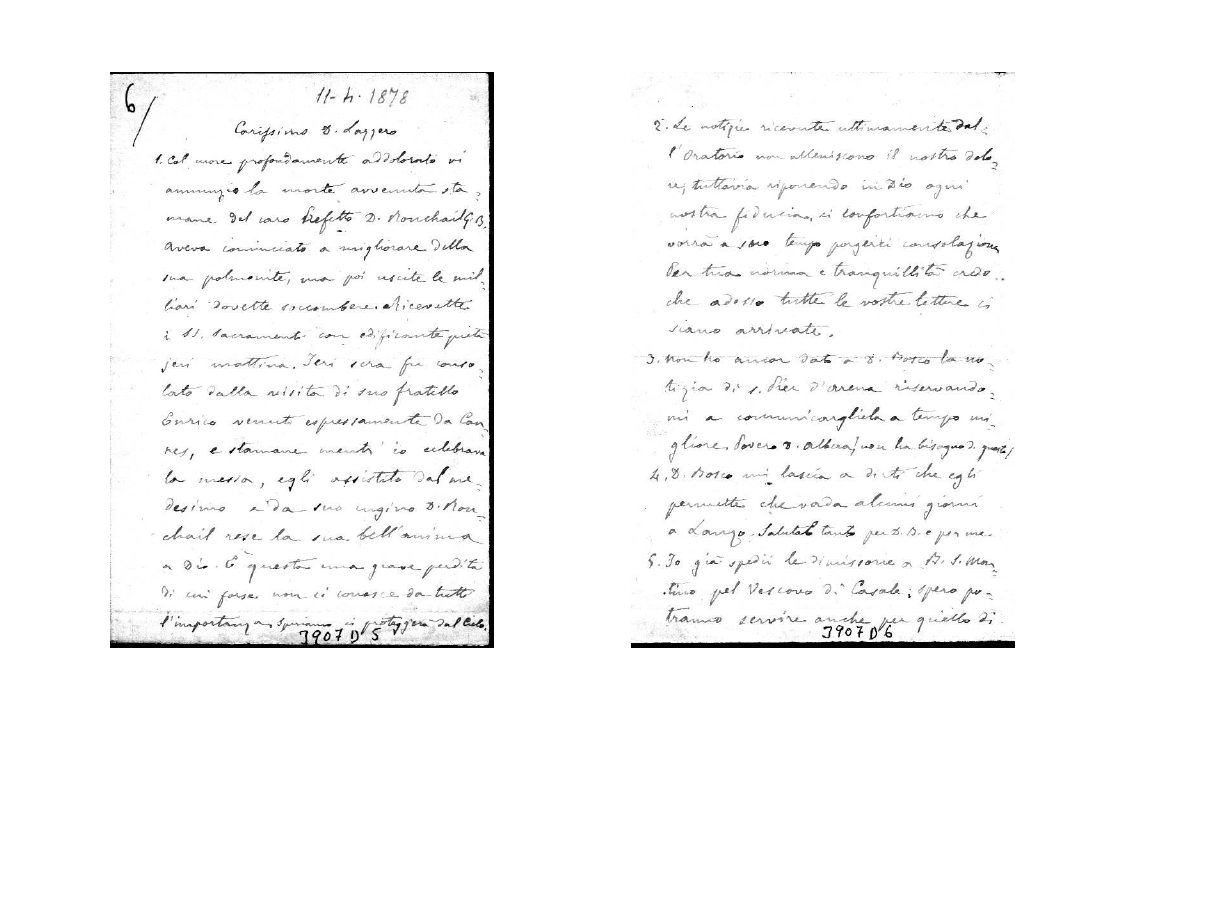 6/
11-4-1878
Carissimo D. Lazzero
1. Col cuore profondamente addolorato vi
annunzio la morte avvenuta sta-
mane del caro Prefetto D. Ronchail G. B.
Aveva cominciato a migliorare della
sua polmonite, ma poi uscite le mil-
liari dovette soccombere. Ricevette
i SS. Sacramenti con edificante pietà
jeri mattina. Jeri sera fu conso-
lato dalla visita di suo fratello
Enrico venuto espressamente da Can-
nes, e stamane mentr' io celebrava
la messa, egli assistito dal me-
desimo e da suo cugino D. Ron-
chail rese la sua bell'anima
a Dio. È questa una grave perdita
di cui forse non si conosce da tutti
l'importanza. Speriamo ci proteggerà dal Cielo.
3907 D 5
2. Le notizie ricevute ultimamente dal-
l'Oratorio non alleniscono il nostro dolo-
re; tuttavia riponendo in Dio ogni
nostra fiducia, ci confortiamo che
vorrà a suo tempo porgerci consolazione
Per tua norma e tranquillità credo
che adesso tutte le vostre lettere ci
siano arrivate.
3. Non ho ancor dato a D. Bosco la no-
tizia di S. Pier d'Arena riservando-
mi a comunicargliela a tempo mi-
gliore. Povero D. Albera! non ha bisogno di questo!
4. D. Bosco mi lascia a dirti che egli
permette che vada alcuni giorni
a Lanzo. Saluta tanto per D. B. e per me.
5. Io già spedii le dimissorie a B. S. Mar-
tino pel Vescovo di Casale; spero po-
tranno servire anche per quello di
3907 D 6